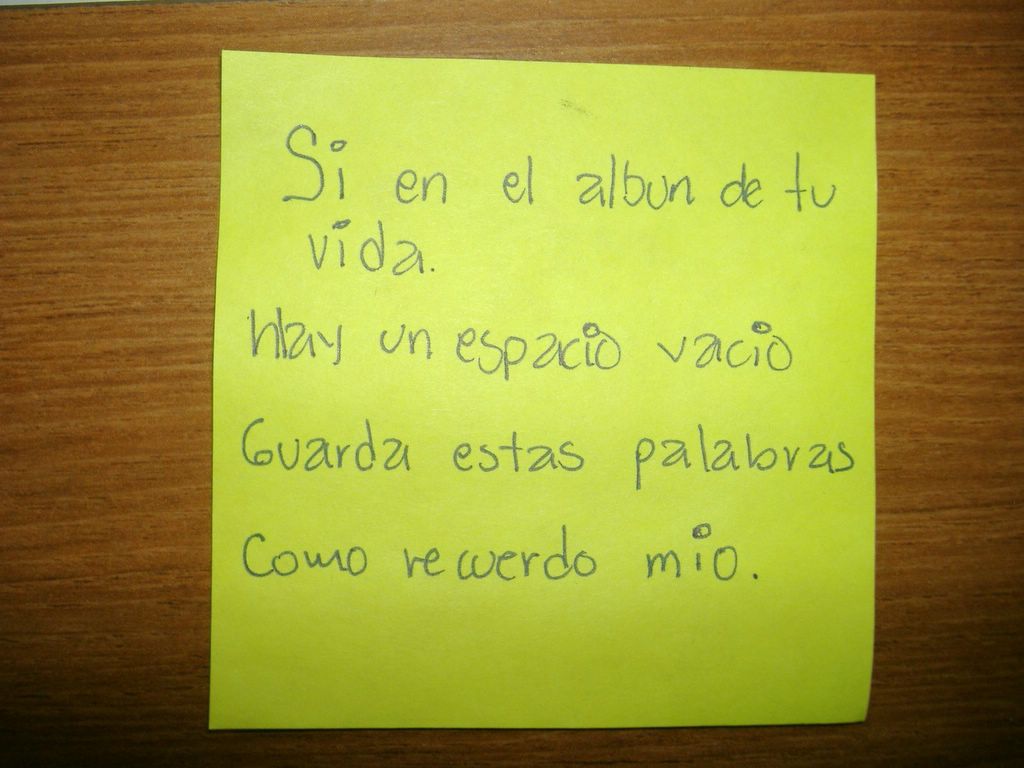 Si en el albun de tu
vida.
Hay un espacio vacio
Guarda estas palabras
Como recuerdo mio.